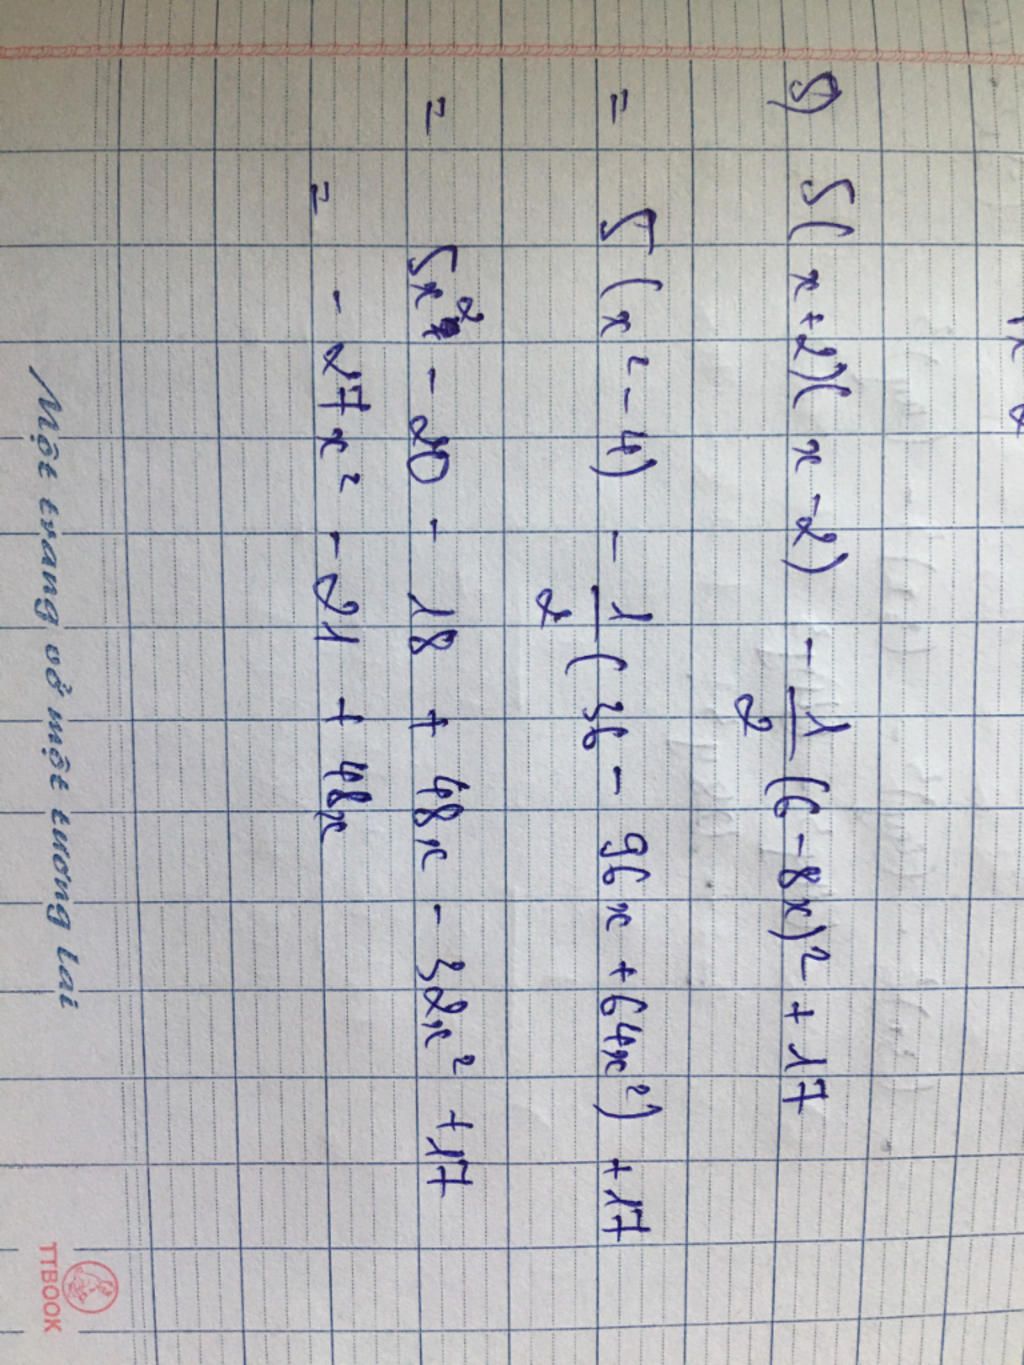 5) 5(x+2)(x-2) - 1/2 (6-8x)² + 17
= 5(x²-4) - 1/2 (36 - 96x + 64x²) + 17
= 5x² - 20 - 18 + 48x - 32x² + 17
= - 27x² - 21 + 48x
Một trang vở một tương lai
TTBOOK